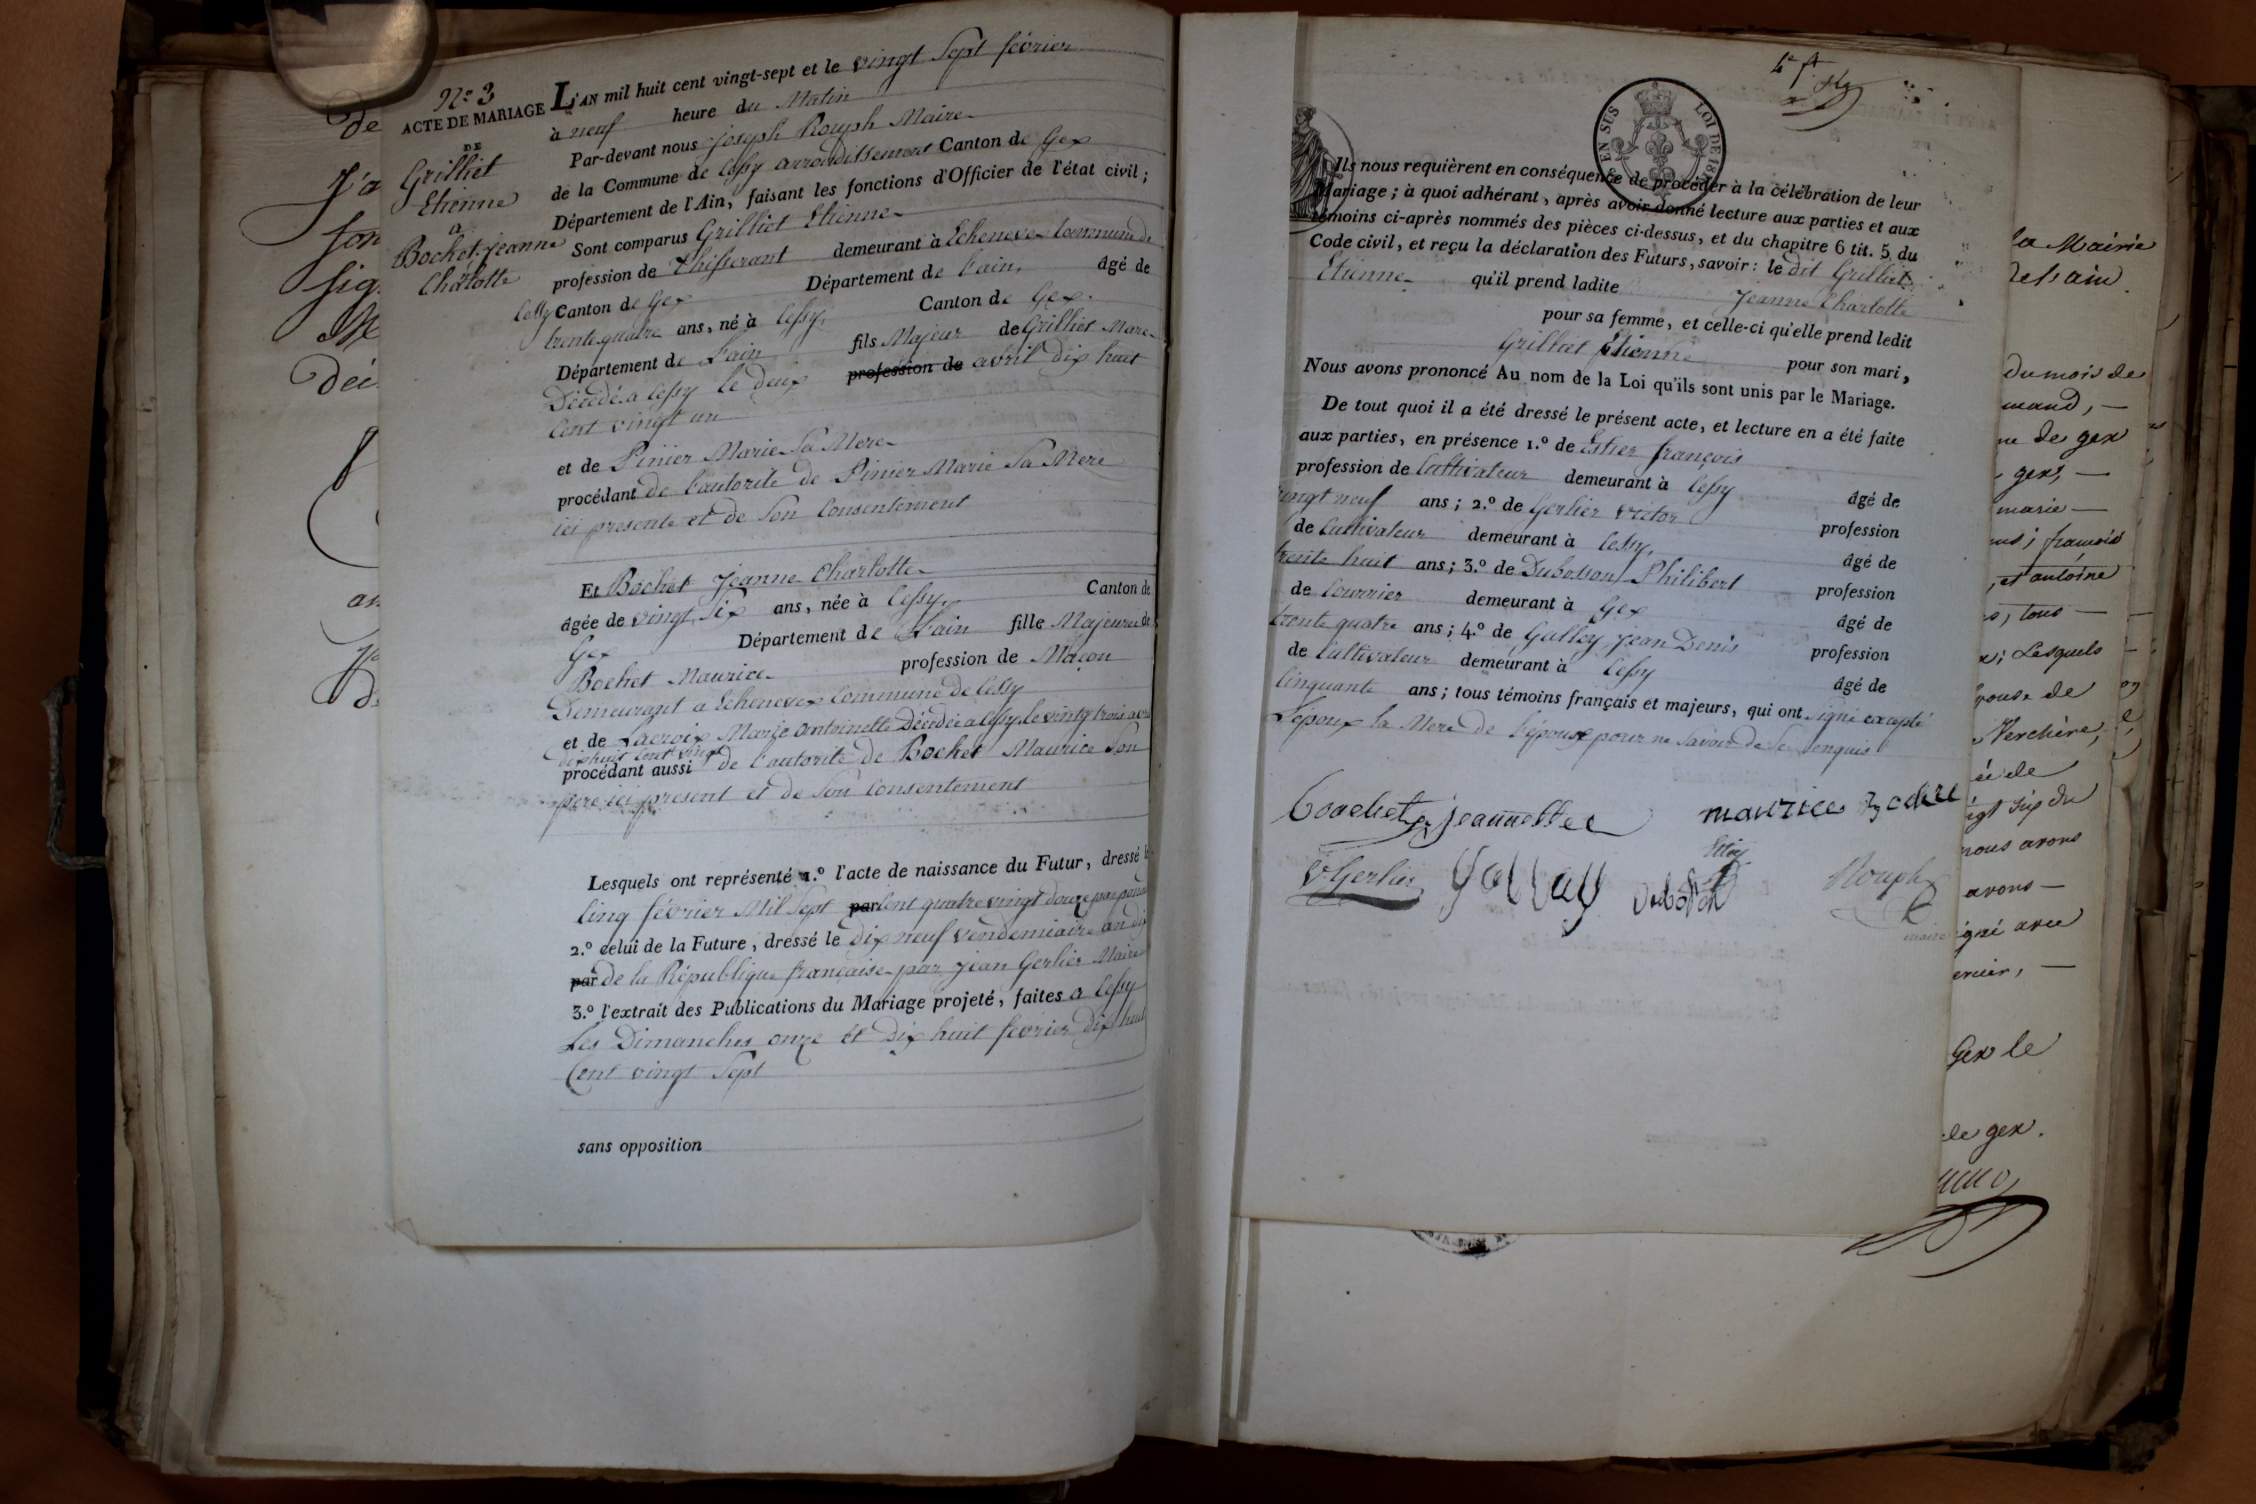 N.º 3
ACTE DE MARIAGE
DE
Grilliet
Etienne
a
Bochet jeanne
Charlotte
L'AN mil huit cent vingt-sept et le vingt Sept février
à neuf heure du Matin
Par-devant nous joseph Rouph Maire
de la Commune de Cessy arrondissement Canton de Gex
Département de l'Ain, faisant les fonctions d'Officier de l'état civil ;
Sont comparus Grilliet Etienne
profession de demeurant à Echenevex Commune de
Cessy Canton de Gex Département de l'ain, âgé de
trente quatre ans, né à Cessy, Canton de Gex.
Département de L'ain fils Majeur de Grilliet Marc
Décédé a Cessy le deux profession de avril dix huit
Cent vingt un
et de Pinier Marie Sa Mere
procédant de l'autorité de Pinier Marie Sa Mere
ici presente et de Son Consentement
Et Bochet Jeanne Charlotte
âgée de vingt Six ans, née à Cessy, Canton de
Gex Département de L'ain fille Majeure de
Bochet Maurice profession de Maçon
Demeurant a Echenevex Commune de Cessy
et de Lacroix Marie antoinette Décédée a Cessy le vingt trois
dix huit Cent vingt
procédant aussi de l'autorité de Bochet Maurice Son
pere ici present et de Son Consentement
Lesquels ont représenté 1.º l'acte de naissance du Futur, dressé le
Cinq février Mil Sept par Cent quatre vingt douze
2.º celui de la Future, dressé le dix neuf vendemiaire an
par de la République française par jean Gerlier Maire
3.º l'extrait des Publications du Mariage projeté, faites a Cessy
Les Dimanches onze et Dix huit février Dix huit
Cent vingt Sept
sans opposition
EN SUS LOI DE
Ils nous requièrent en conséquence de procéder à la célébration de leur
Mariage ; à quoi adhérant, après avoir donné lecture aux parties et aux
témoins ci-après nommés des pièces ci-dessus, et du chapitre 6 tit. 5 du
Code civil, et reçu la déclaration des Futurs, savoir : le dit Grilliet
Etienne qu'il prend ladite Jeanne Charlotte
pour sa femme, et celle-ci qu'elle prend ledit
Grilliet Etienne pour son mari,
Nous avons prononcé Au nom de la Loi qu'ils sont unis par le Mariage.
De tout quoi il a été dressé le présent acte, et lecture en a été faite
aux parties, en présence 1.º de Estier françois
profession de Cultivateur demeurant à Cessy âgé de
vingt neuf ans ; 2.º de Gerlier victor profession
de Cultivateur demeurant à Cessy, âgé de
trente huit ans ; 3.º de Dubosson Philibert profession
de Courrier demeurant à Gex âgé de
trente quatre ans ; 4.º de Galley Jean Denis profession
de Cultivateur demeurant à Cessy âgé de
Cinquante ans ; tous témoins français et majeurs, qui ont signé excepté
L'époux la Mere de l'époux pour ne Savoir de Ce enquis
Boachet jeannettee
maurice
V Gerlier
gallay
Rouph
maire
la Mairie
du mois de
de gex
gex, —
marie —
françois
et antoine
tous —
Lesquels
épouse de
Verchère,
nous avons
avons —
Gex le
de gex.